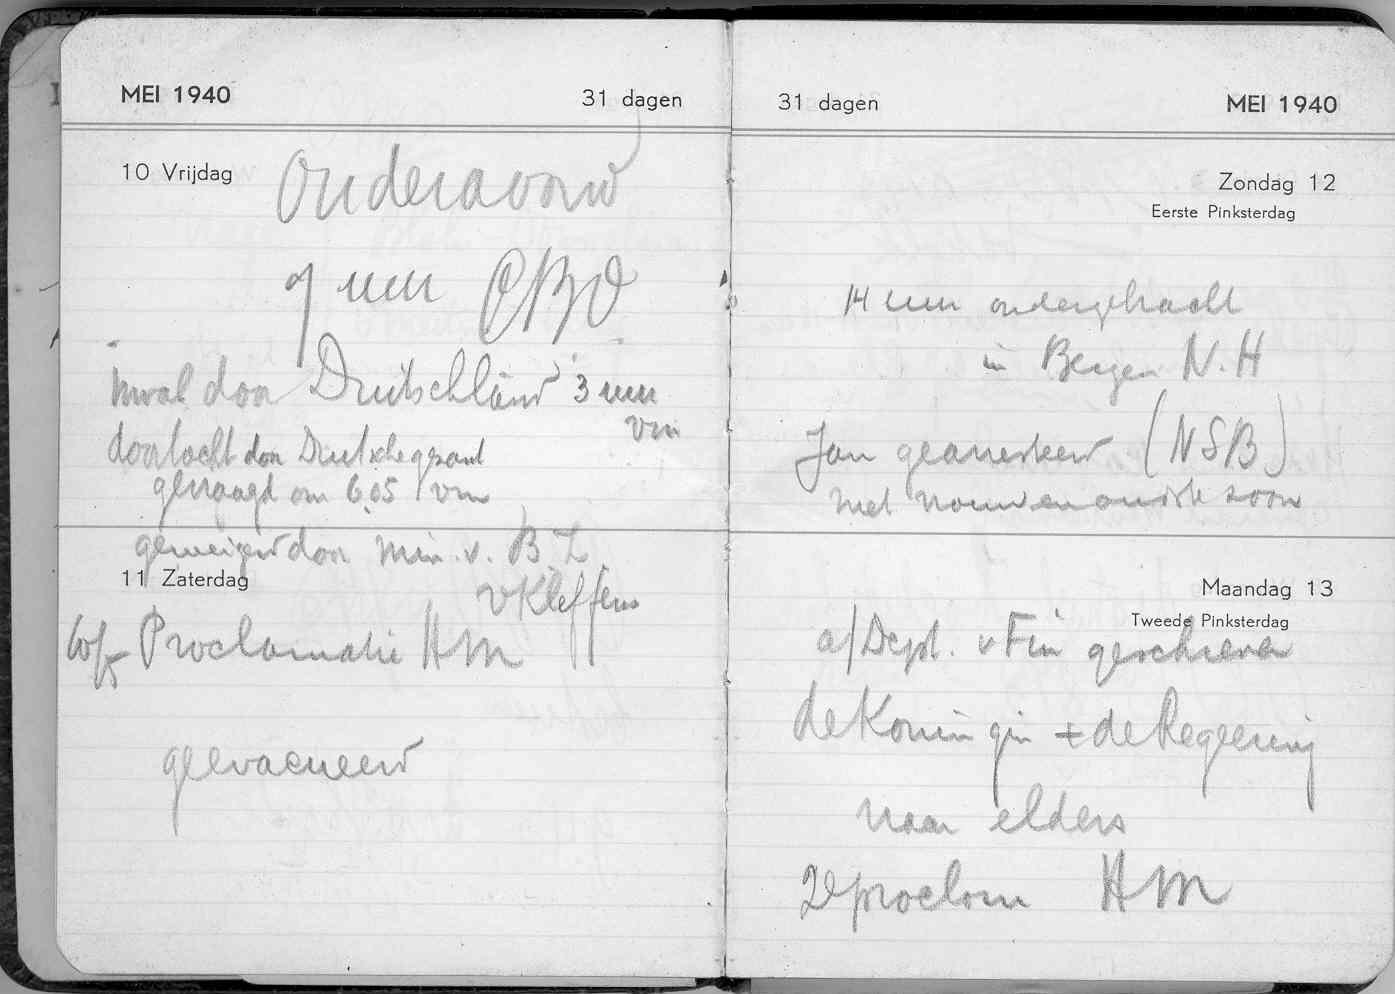 MEI 1940
31 dagen
10 Vrijdag
Ouderavond
9 uur OBO
Inval door Duitschland 3 uur
vm
doortocht door Duitsche gezant
gevraagd om 6.05 vm
geweigerd door min. v. B Z
v Kleffens
11 Zaterdag
Proclamatie HM
geevacueerd
31 dagen
MEI 1940
Zondag 12
Eerste Pinksterdag
14 uur ondergebracht
in Bergen N.H
Jan gearresteerd (NSB)
met vrouw en oudste zoon
Maandag 13
Tweede Pinksterdag
a/Dept. v Fin geschreven
de Koningin + de Regeering
naar elders
2e proclam HM